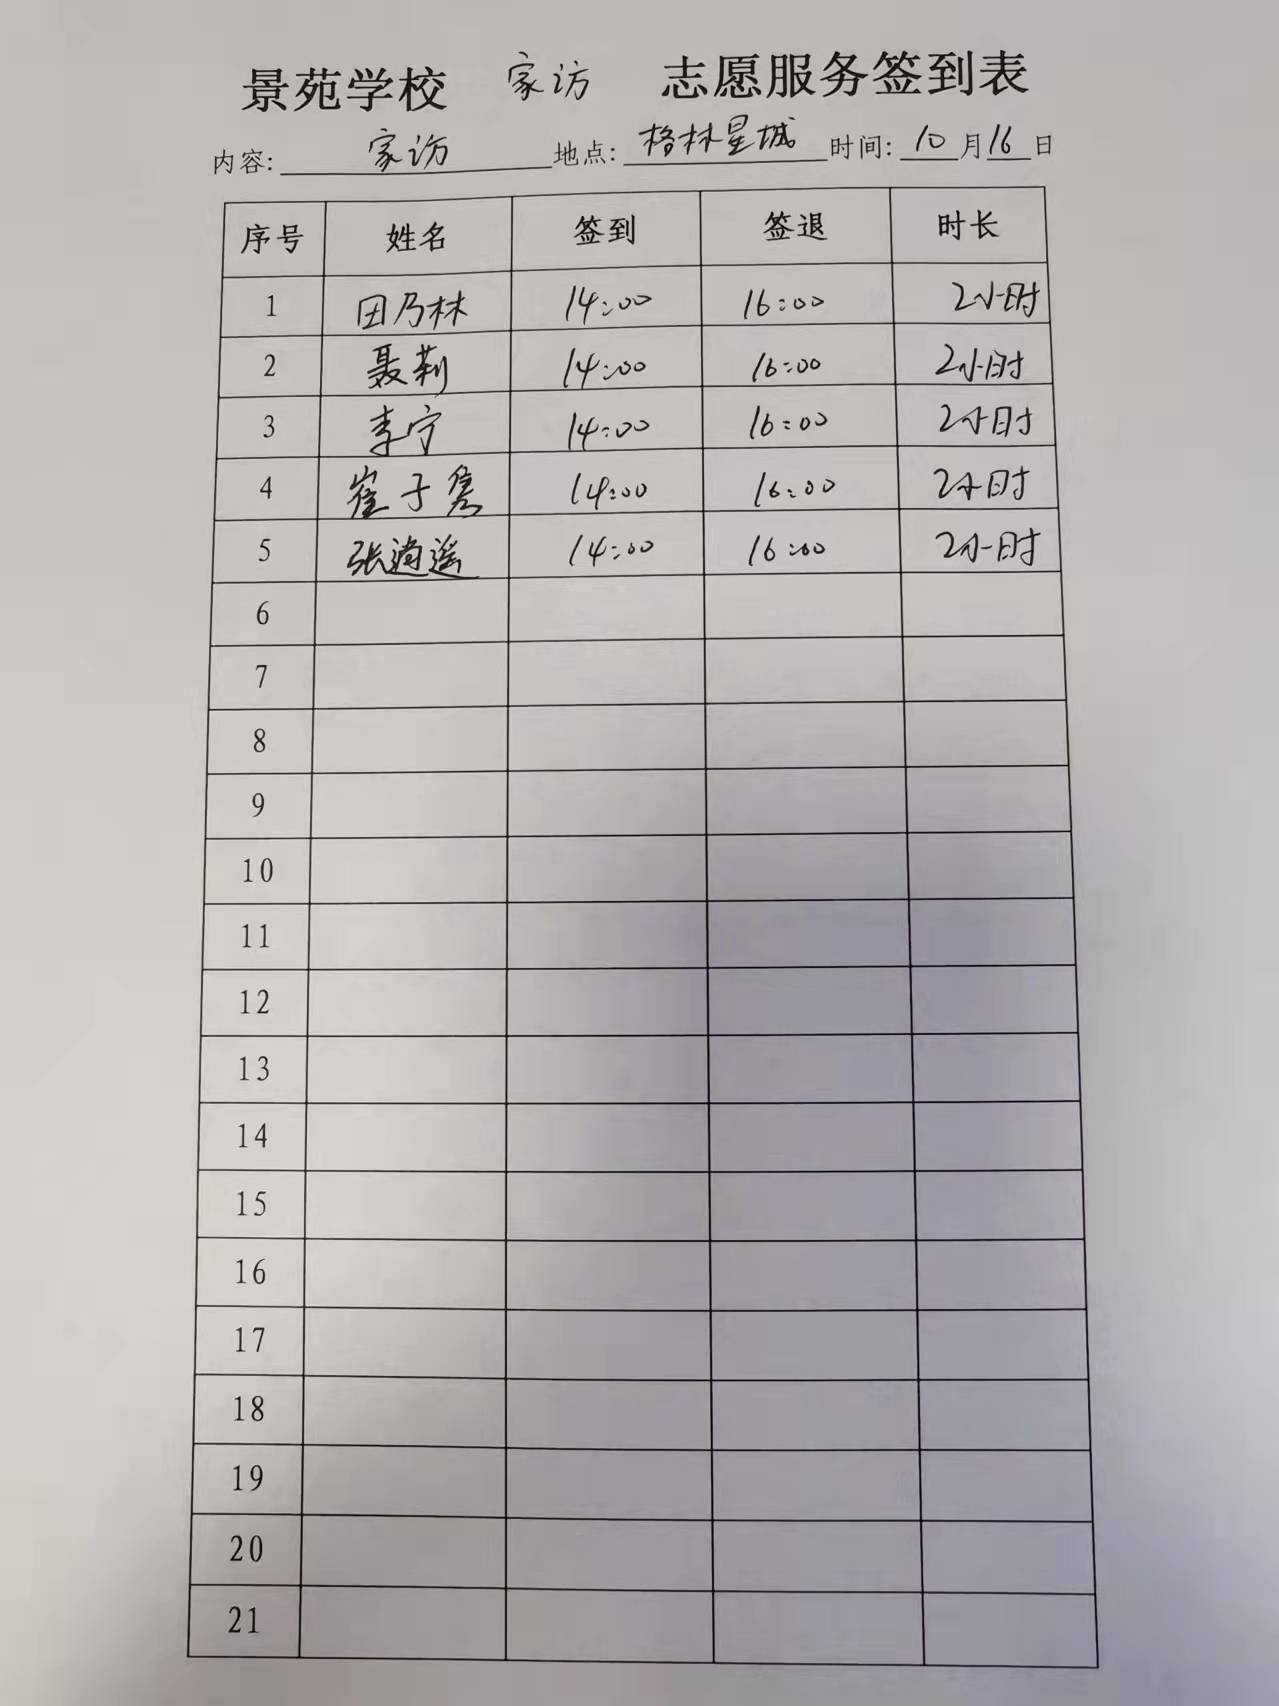 景苑学校 家访 志愿服务签到表
内容: 家访 地点: 格林星城 时间: 10月16日
序号 姓名 签到 签退 时长
1 田乃林 14:00 16:00 2小时
2 聂莉 14:00 16:00 2小时
3 李宁 14:00 16:00 2小时
4 崔子隽 14:00 16:00 2小时
5 张逍遥 14:00 16:00 2小时
6
7
8
9
10
11
12
13
14
15
16
17
18
19
20
21